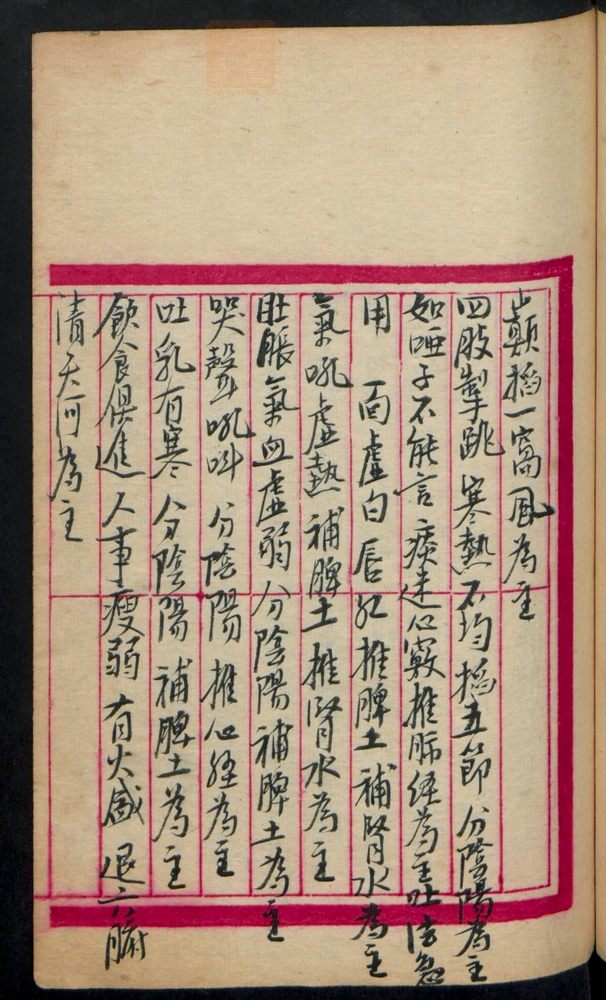 巔掐一窩風為主
四肢掣跳 寒熱不均掐五節 分陰陽為主
如啞子不能言 痰迷心竅推肺經為主吐法急
用 面虛白 唇紅推脾土 補腎水為主
氣吼虛熱 補脾土 推腎水為主
肚脹氣血虛弱 分陰陽補脾土為主
哭聲吼叫 分陰陽 推心經為主
吐乳有寒 分陰陽 補脾土為主
飲食俱進 人事瘦弱 有火盛 退六腑
清天河為主